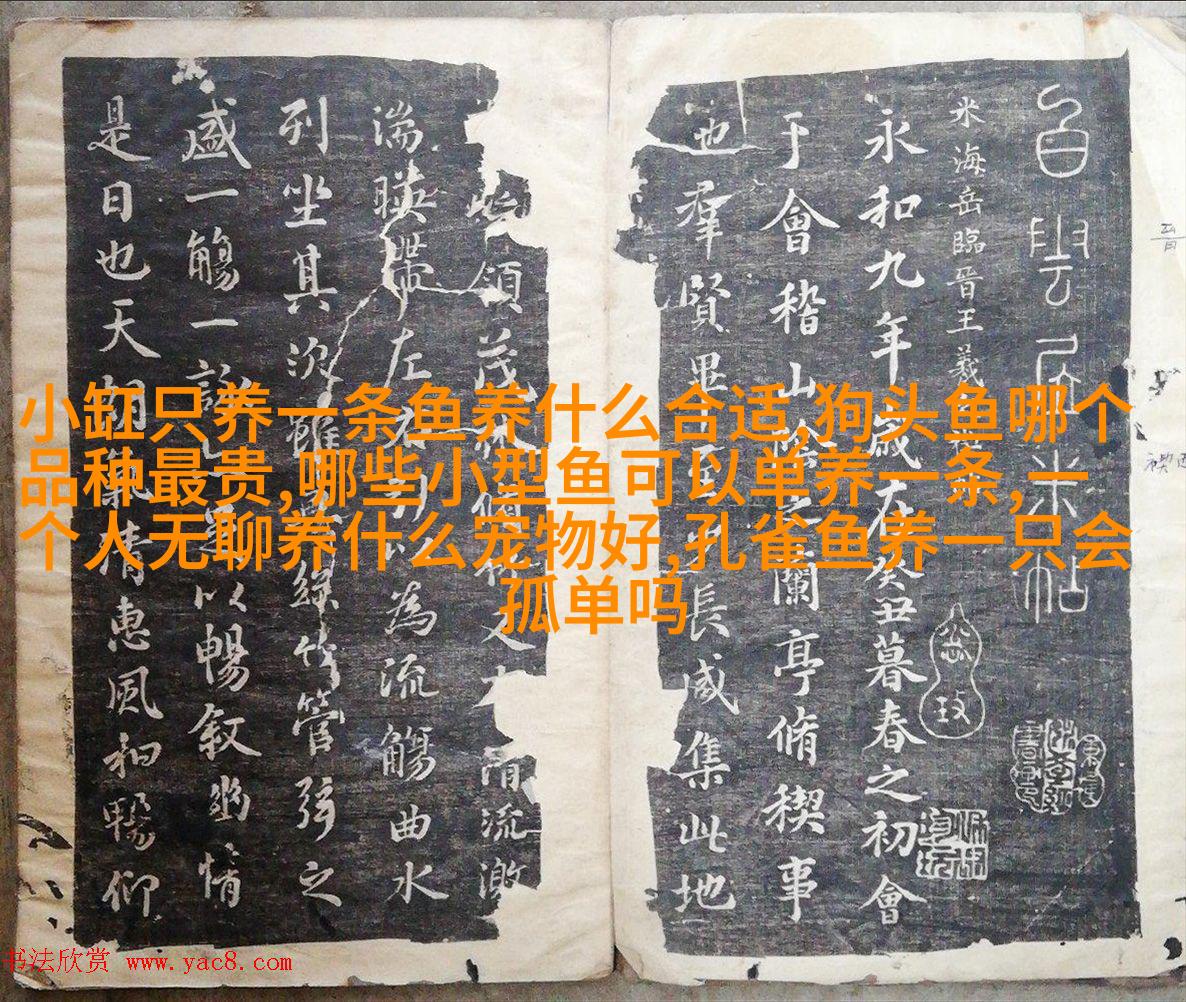 白雲居米帖
米海岳臨晉王羲
永和九年歲在癸丑暮春之初會
于會稽山陰之蘭亭脩稧事
也羣賢畢至少長咸集此地
領茂林脩竹又有清流激
湍暎帶左右引以為流觴曲水
列坐其次雖無絲竹管弦之
盛一觴一詠亦足以暢敘幽情
是日也天朗氣清惠風和暢仰
小缸只养一条鱼养什么合适,狗头鱼哪个
品种最贵,哪些小型鱼可以单养一条,一
个人无聊养什么宠物好,孔雀鱼养一只会
孤单吗
书法欣赏 www.yac8.com